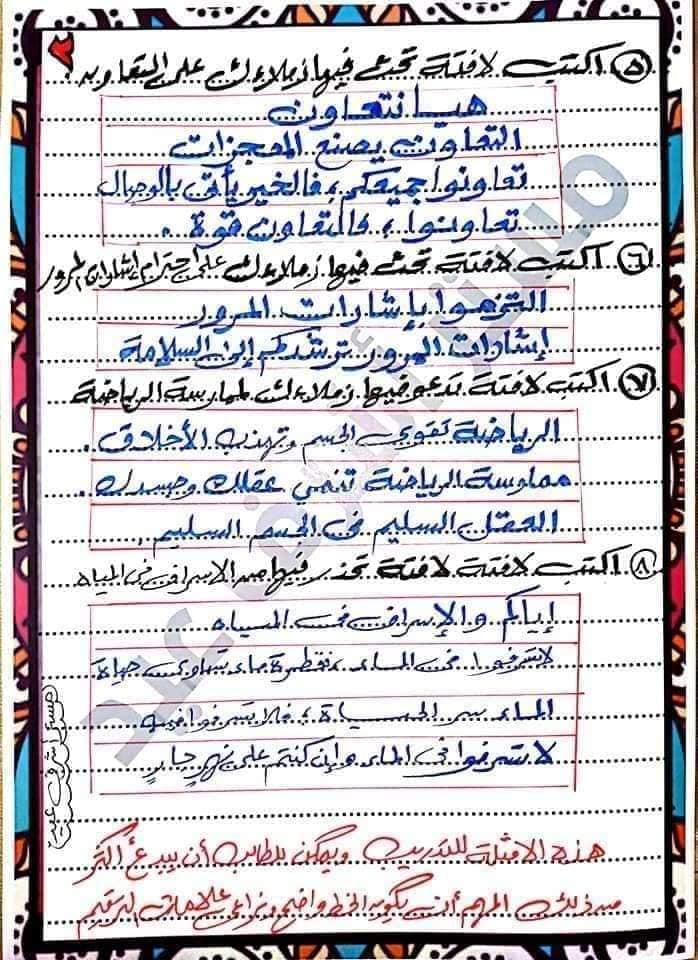 ٢
٥ اكتب لافتة تحث فيها زملاءك على التعاون.
هيا نتعاون
التعاون يصنع المعجزات
تعاونوا جميعكم، فالخير يأتى بالوصال
تعاونوا، فالتعاون قوة.
٦ اكتب لافتة تحث فيها زملاءك على احترام إشارات المرور
التزموا بإشارات المرور
إشارات المرور ترشدكم إلى السلامة
٧ اكتب لافتة تدعو فيها زملاءك لممارسة الرياضة
الرياضة تقوى الجسم وتهذب الأخلاق.
ممارسة الرياضة تنمى عقلك وجسدك.
العقل السليم فى الجسم السليم.
٨ اكتب لافتة لافتة تحذر فيها من الإسراف فى المياه
إياكم والإسراف فى المياه
لا تسرفوا فى الماء، فقطرة ماء تساوى حياة
الماء سر الحياة، فلا تسرفوا فيه
لا تسرفوا فى الماء وإن كنتم على نهرٍ جارٍ
هذه الامثلة للتدريب ويمكن للطالب أن يبدع أكثر
من ذلك المهم أن يكون الخط واضح ونراعى علامات الترقيم
مستر أشرف عيد
مستر أشرف عيد